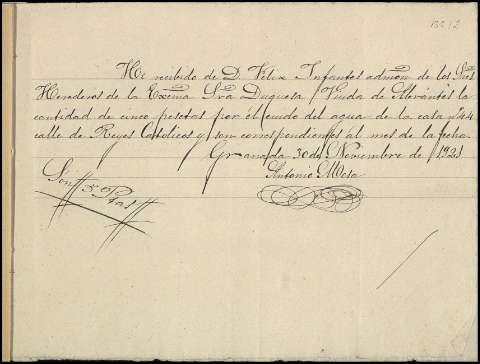 He recibido de D. Felix Infantes admon de los Sres
Herederos de la Excma Sra Duquesa Viuda de Abrántes la
cantidad de cinco pesetas por el cuido del agua de la casa nº 44
calle de Reyes Catolicos y son correspondientes al mes de la fecha.
Granada 30 de Noviembre de 1921
Antonio Mesa
Son 5 Ptas